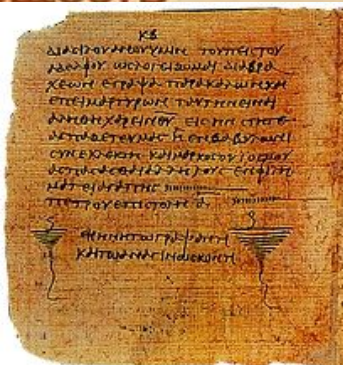 ΚΒ
ΔΙΑ ϹΙΛΟΥΑΝΟΥ ΥΜΙΝ ΤΟΥ ΠΕΙϹΤΟΥ
ΑΔΕΛΦΟΥ ΩϹ ΛΟΓΕΙΖΟΜΑΙ ΔΙΑ ΒΡΑ
ΧΕΩΝ ΕΓΡΑΨΑ ΠΑΡΑΚΑΛΩΝ ΚΑΙ
ΕΠΕΙΜΑΡΤΥΡΩΝ ΤΑΥΤΗΝ ΕΙΝΑΙ
ΑΛΗΘΗ ΧΑΡΕΙΝ ΘΥ ΕΙϹ ΗΝ ϹΤΗΤΕ
ΑϹΠΑΖΕΤΕ ΥΜΑϹ Η ΕΝ ΒΑΒΥΛΩΝΙ
ϹΥΝΕΚΛΕΚΤΗ ΚΑΙ ΜΑΡΚΟϹ Ο ΥΙΟϹ ΜΟΥ
ΑϹΠΑϹΑϹΘΑΙ ΑΛΛΗΛΟΥϹ ΕΝ ΦΙΛΗ
ΜΑΤΕΙ ΑΓΑΠΗϹ
ΠΕΤΡΟΥ ΕΠΙϹΤΟΛΗ Α
ΕΙΡΗΝΗ ΤΩ ΓΡΑΨΑΝΤΙ
ΚΑΙ ΤΩ ΑΝΑΓΙΝΩϹΚΟΝΤΙ